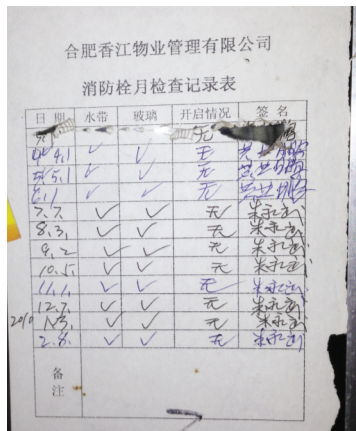 合肥香江物业管理有限公司
消防栓月检查记录表
日 期 水带 玻璃 开启情况 签 名
无
4.1 ✓ ✓ 无
5.1 ✓ ✓ 无
6.1 ✓ ✓ 无
7.7. ✓ ✓ 无 朱永武
8.3. ✓ ✓ 无 朱永武
9.2 ✓ ✓ 无 朱永武
10.5. ✓ ✓ 无 朱永武
11.1. ✓ ✓ 无 朱永武
12.7. ✓ ✓ 无 朱永武
2010 1.3. ✓ ✓ 无 朱永武
2.8. ✓ ✓ 无 朱永武
备
注